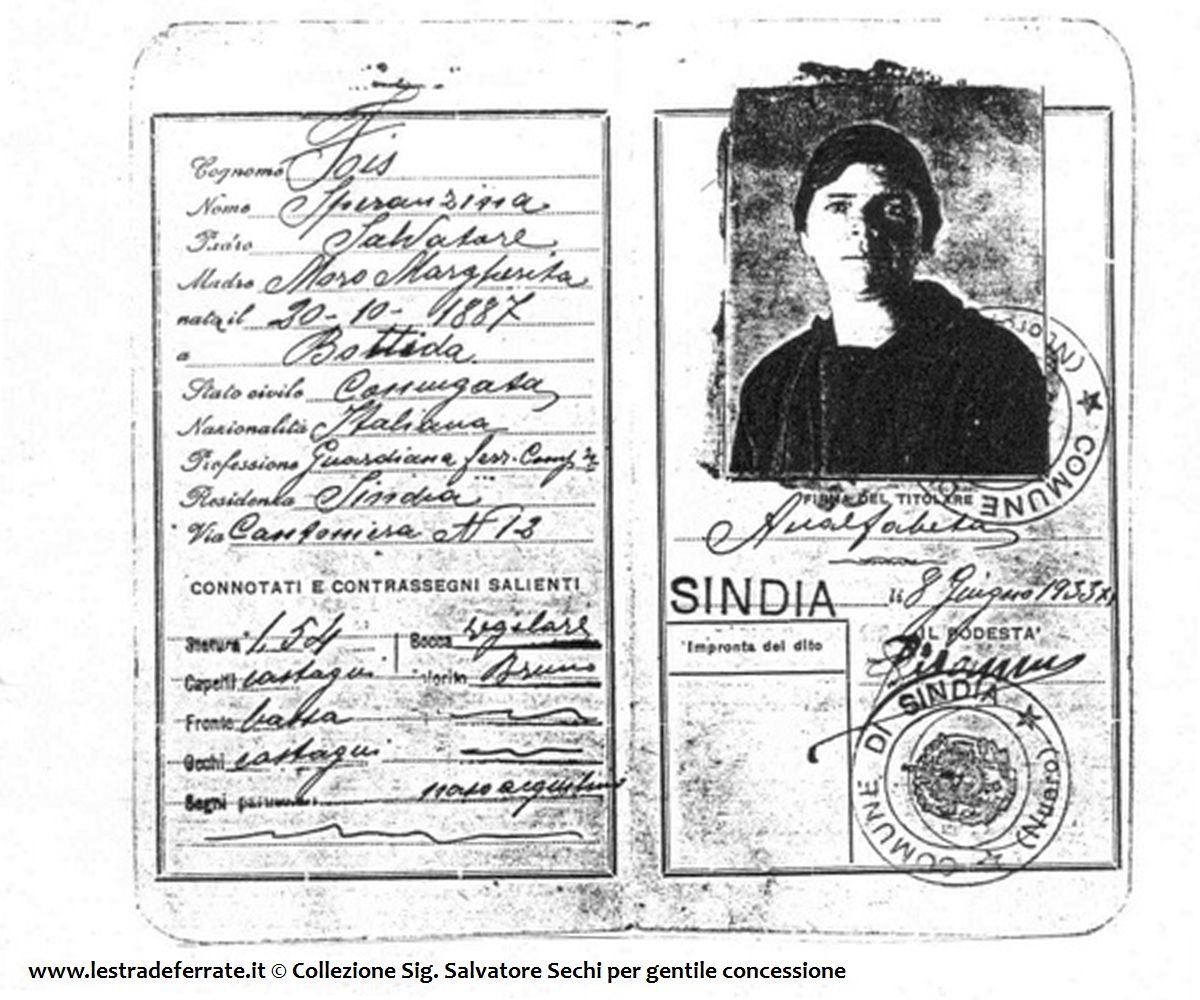 Cognome Fois
Nome Speranzina
Padre Salvatore
Madre Moro Margherita
nata il 20-10-1887
a Bottida
Stato civile Coniugata
Nazionalità Italiana
Professione Guardiana ferr. Comp.
Residenza Sindia
Via Cantoniera N 12
CONNOTATI E CONTRASSEGNI SALIENTI
Statura 1,54
Bocca regolare
Capelli castagni
Colorito Bruno
Fronte bassa
Occhi castagni
Segni particolari naso aquilino
COMUNE (Nuoro)
FIRMA DEL TITOLARE
Analfabeta
SINDIA li 8 Giugno 1933 XI
IL PODESTA'
Impronta del dito
COMUNE DI SINDIA (Nuoro)
www.lestradeferrate.it © Collezione Sig. Salvatore Sechi per gentile concessione